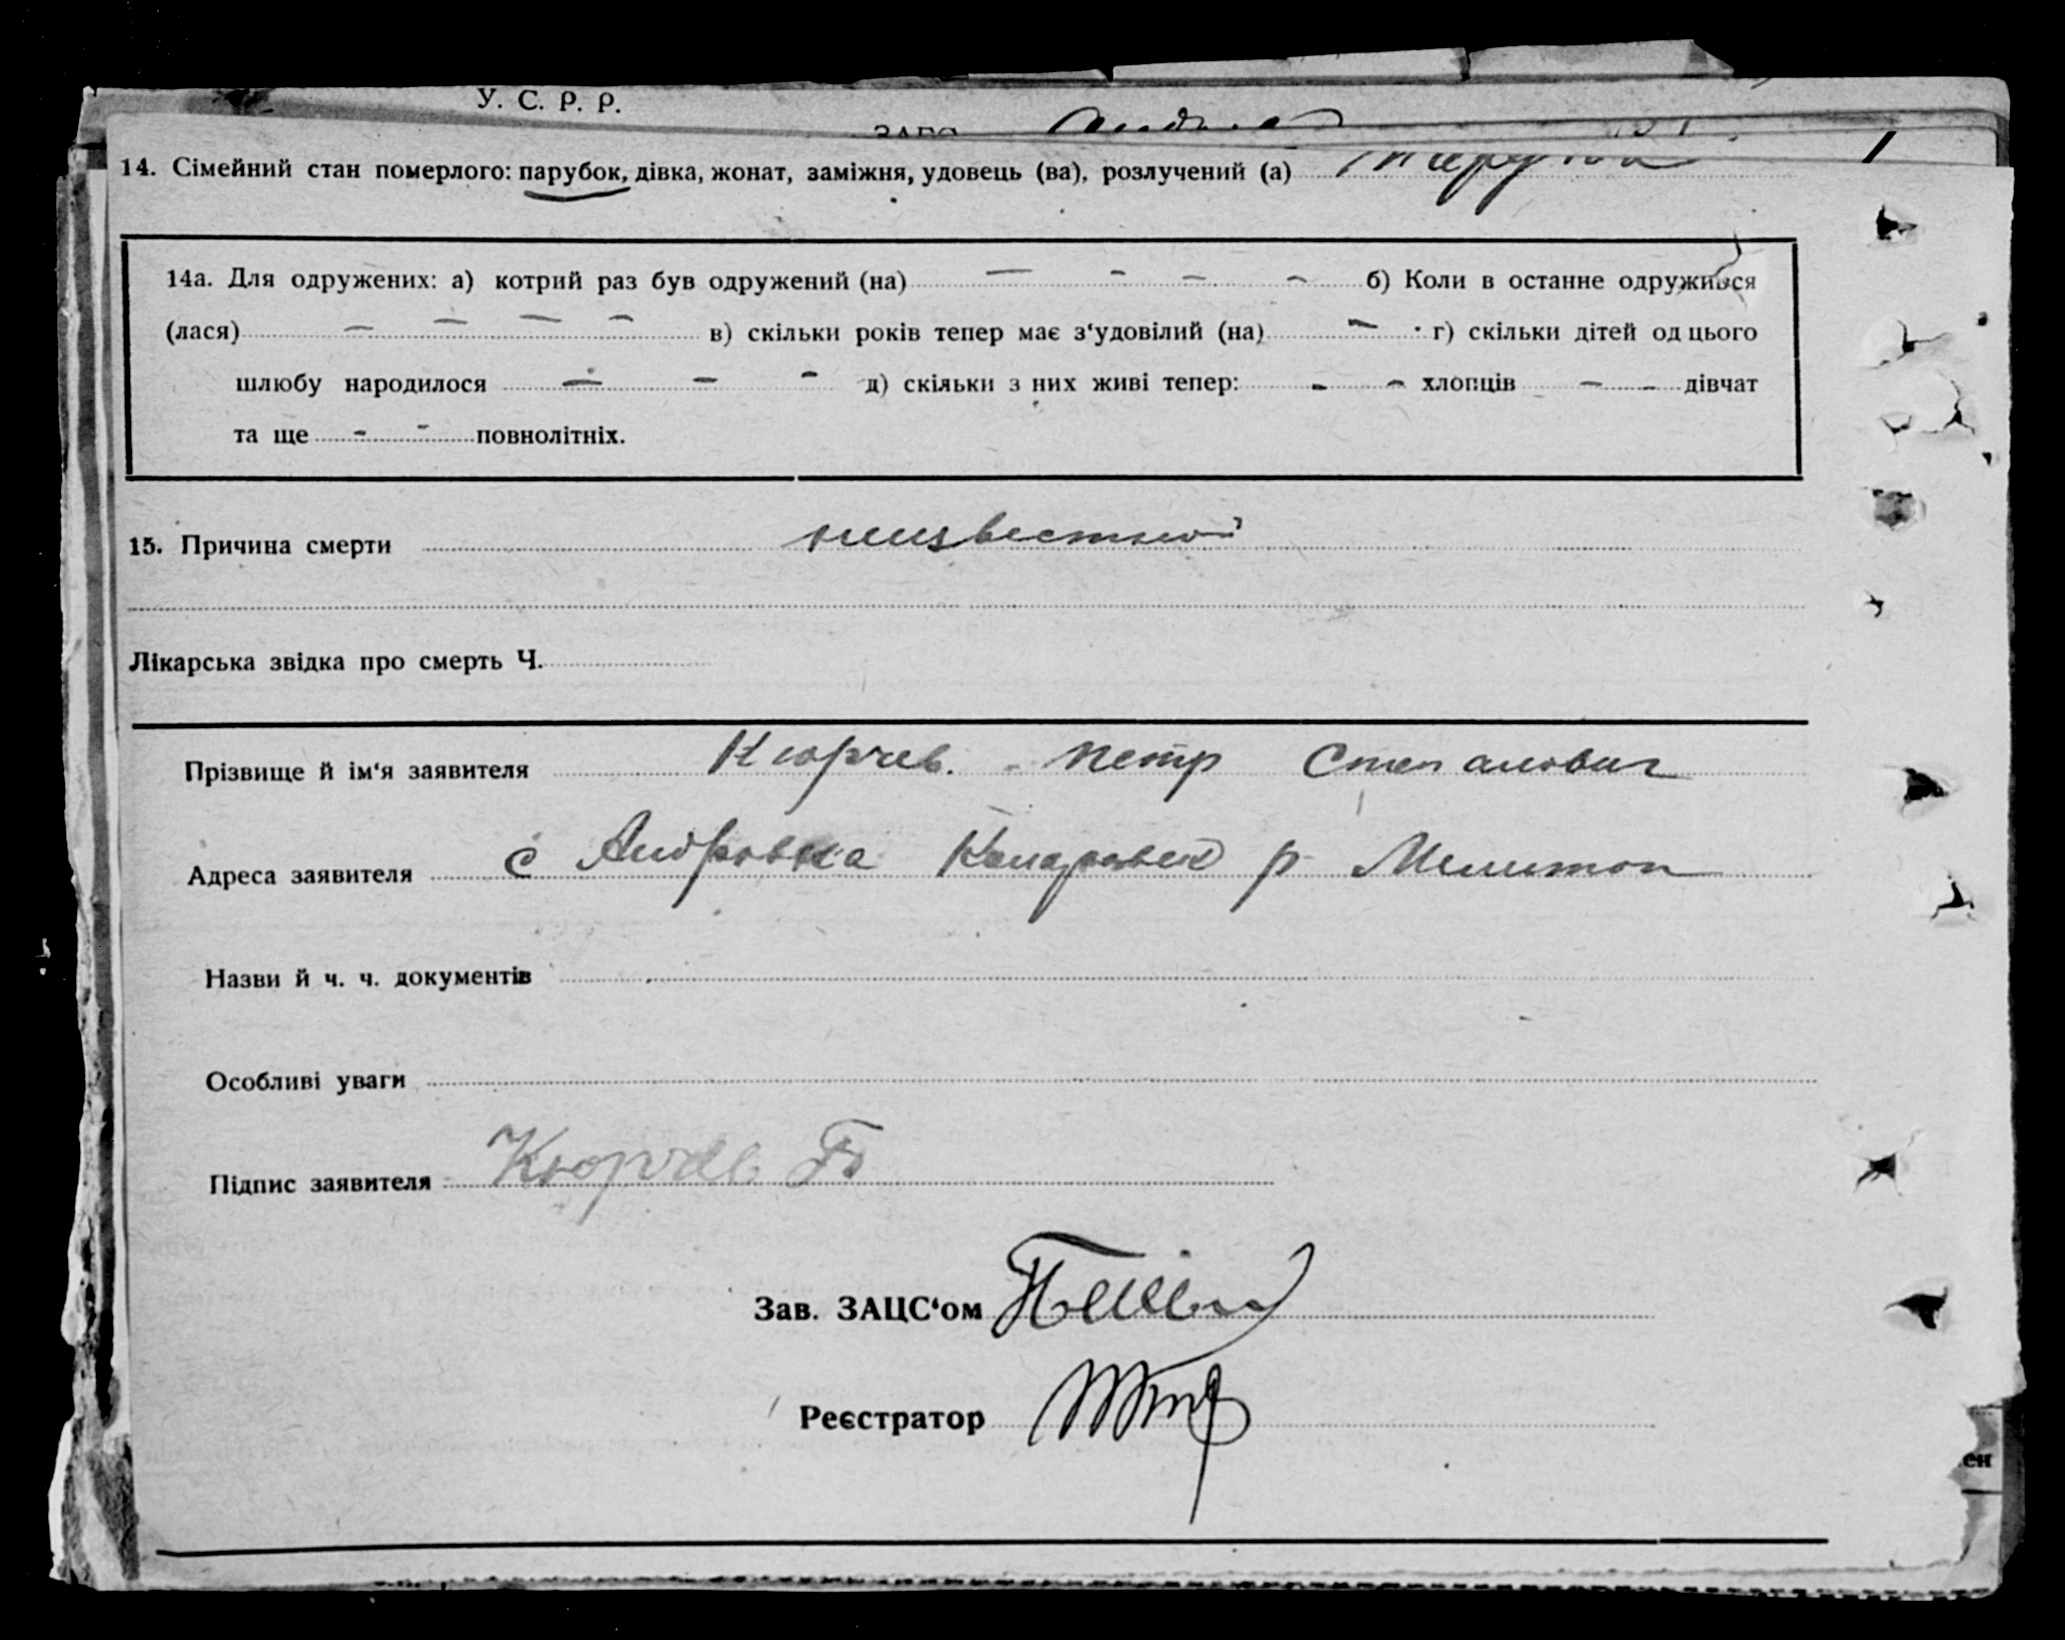 У. С. Р. Р.
14. Сімейний стан померлого: парубок, дівка, жонат, заміжня, удовець (ва), розлучений (а)
14а. Для одружених: а) котрий раз був одружений (на) — - - - б) Коли в останне одружився
(лася) — — — — в) скільки років тепер має з‘удовілий (на) - г) скільки дітей од цього
шлюбу народилося — - - д) скільки з них живі тепер: - - хлопців - - дівчат
та ще - - повнолітніх.
15. Причина смерти неизвестной
Лікарська звідка про смерть Ч.
Прізвище й ім‘я заявителя Кюрчев. Петр Степанович
Адреса заявителя с Андровка р Мелитоп
Назви й ч. ч. документів
Особливі уваги
Підпис заявителя Кюрчев П
Зав. ЗАЦС‘ом
Реєстратор
ен